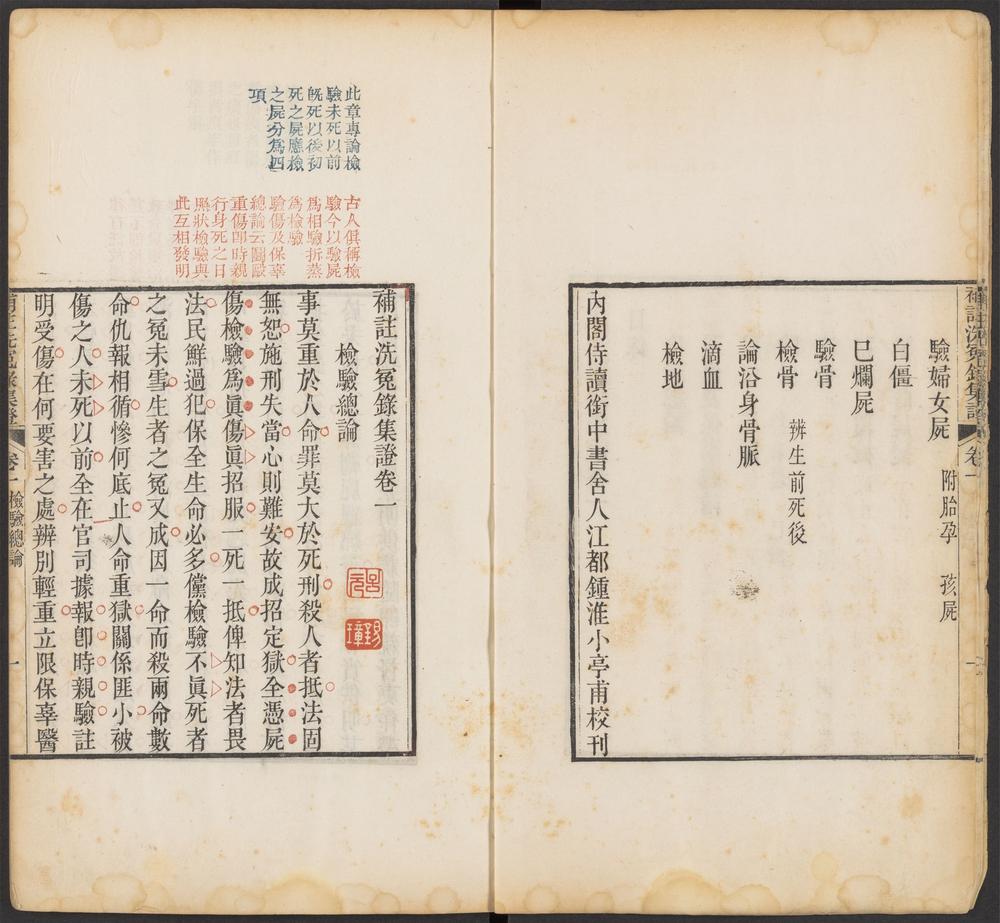 補註洗冤錄集證 卷一 一
驗婦女屍 附胎孕 孩屍
白僵
巳爛屍
驗骨
檢骨 辨生前死後
論沿身骨脈
滴血
檢地
內閣侍讀銜中書舍人江都鍾淮小亭甫校刊
此章專論檢
驗未死以前
旣死以後初
死之屍應檢
之屍分爲四
項
古人俱稱檢
驗今以驗屍
爲相驗拆蒸
爲檢驗
驗傷及保辜
總論云鬬毆
重傷卽時親
行身死之日
照狀檢驗與
此互相發明
補註洗冤錄集證卷一
檢驗總論
事莫重於人命罪莫大於死刑殺人者抵法固
無恕施刑失當心則難安故成招定獄全憑屍
傷檢驗爲眞傷眞招服一死一抵俾知法者畏
法民鮮過犯保全生命必多儻檢驗不眞死者
之冤未雪生者之冤又成因一命而殺兩命數
命仇報相循慘何底止人命重獄關係匪小被
傷之人未死以前全在官司據報卽時親驗註
明受傷在何要害之處辨別輕重立限保辜醫
補註洗冤錄集證 卷一 檢驗總論 一